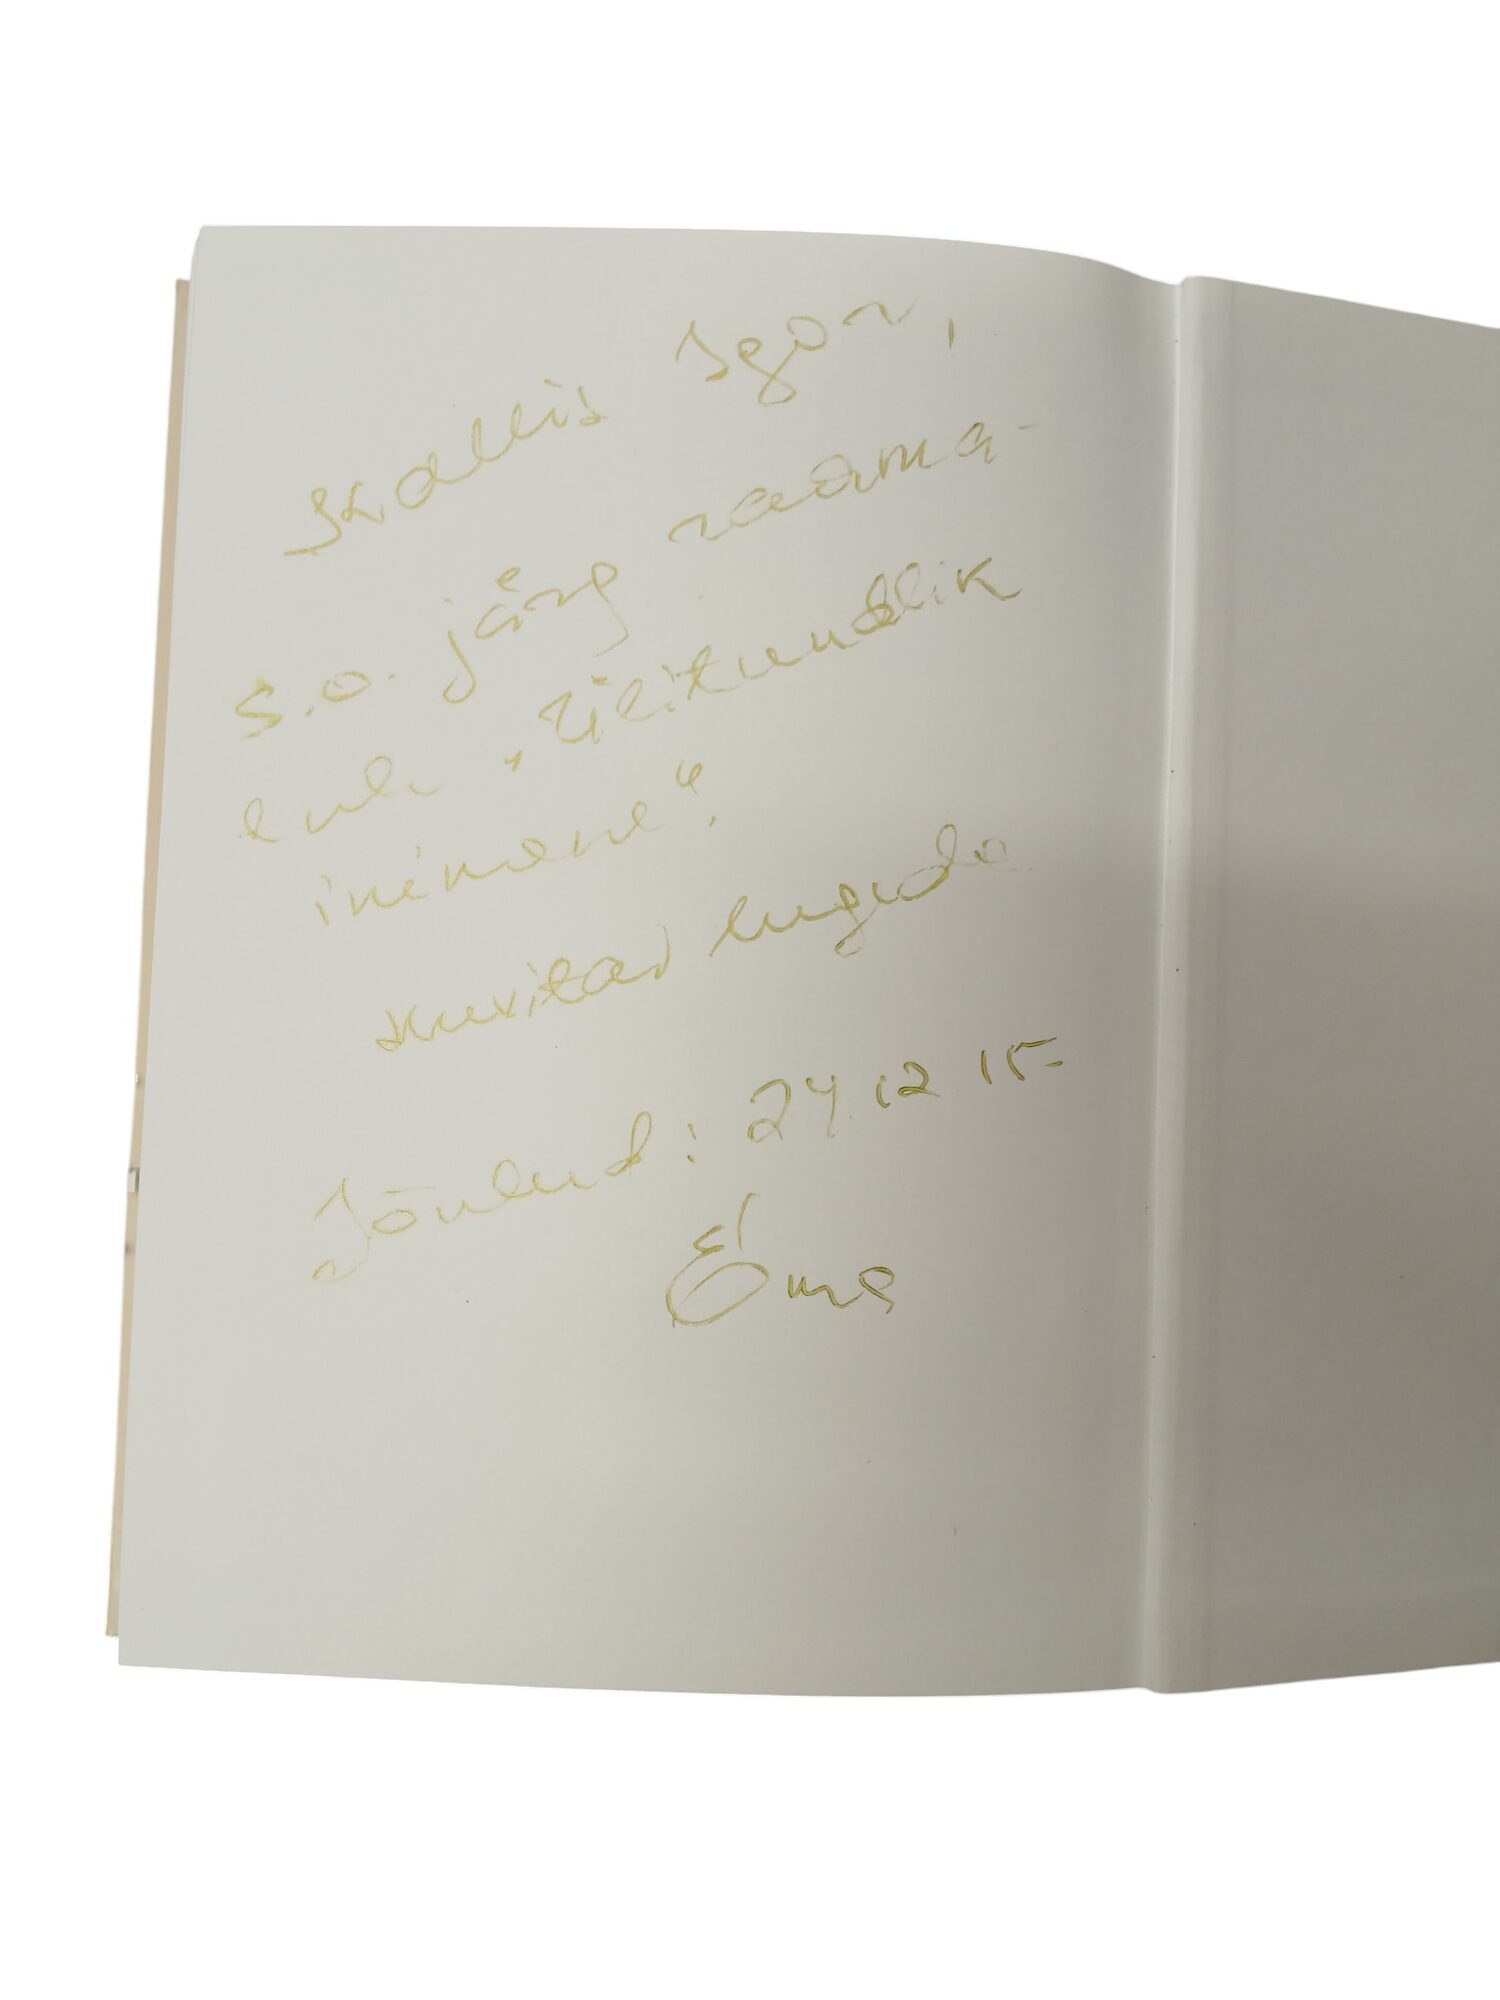 Kallis Igor,
s.o. järg raama-
tule "Ülitundlik
inimene".
Huvitav lugeda
Jõulud: 24 12 15
Ema